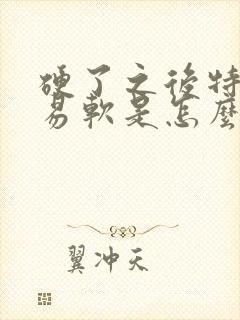 硬了之后特
易軟是怎麼
翼冲天